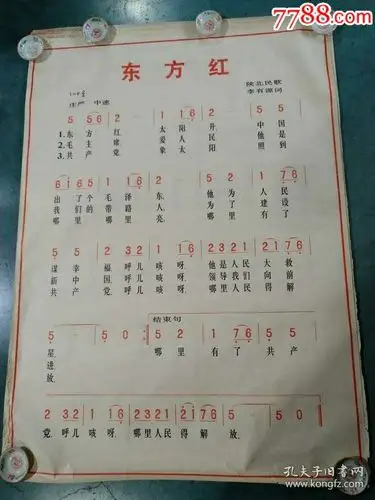 7788.com
东方红
陕北民歌
李有源词
1=F 2/4
庄严 中速
5 5 6 2 - 1 1 6 2 - 5 5
1.东 方 红 太 阳 升 中 国
2.毛 主 席 爱 人 民 他 是
3.共 产 党 象 太 阳 照 到
6 1 6 5 1 1 6 2 - 5 2 1 7 6
出 了 个 毛 泽 东. 他 为 人 民
我 们 的 带 路 人. 为 了 建 设
哪 里 哪 里 亮. 哪 里 有 了
5 5 2 3 2 1 1 6 2 3 2 1 2 1 7 6
谋 幸 福 呼儿 咳 呀. 他是人民 大 救
新 中 国 呼儿 咳 呀. 领导我们 向 前
共 产 党 呼儿 咳 呀. 哪里人民 得 解
结束句
5 - 5 0 5 2 1 7 6 5 5
星. 哪 里 有 了 共 产
进.
放.
2 3 2 1 1 6 2 3 2 1 2 1 7 6 5 - 5 0
党, 呼儿 咳 呀. 哪里人民 得 解 放.
孔夫子旧书网